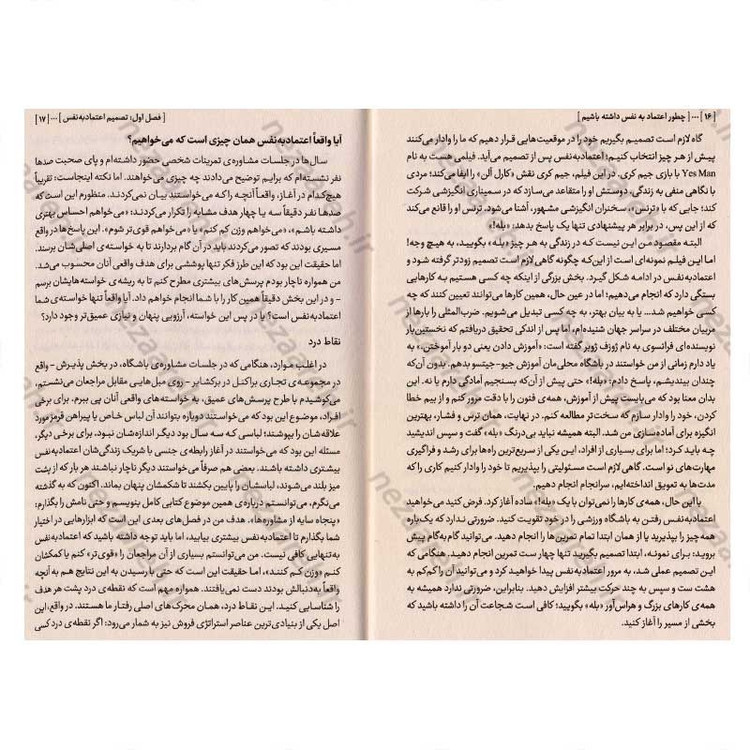 | ۱۶ | ... [ چطور اعتماد به نفس داشته باشیم ]
گاه لازم است تصمیم بگیریم خود را در موقعیت‌هایی قرار دهیم که ما را وادار می‌کنند
پیش از هر چیز انتخاب کنیم؛ اعتمادبه‌نفس پس از تصمیم می‌آید. فیلمی هست به نام
Yes Man با بازی جیم کری. در این فیلم، جیم کری نقش «کارل آلن» را ایفا می‌کند؛ مردی
با نگاهی منفی به زندگی. دوستش او را متقاعد می‌سازد که در سمیناری انگیزشی شرکت
کند؛ جایی که با «ترنس»، سخنران انگیزشی مشهور، آشنا می‌شود. ترنس او را قانع می‌کند
که از این پس، در برابر هر پیشنهادی تنها یک پاسخ بدهد: «بله!»
البته مقصود من این نیست که در زندگی به هر چیز «بله» بگویید، به هیچ وجه!
اما این فیلم نمونه‌ای است از این‌که چگونه گاهی لازم است تصمیم زودتر گرفته شود و
اعتمادبه‌نفس در ادامه شکل گیرد. بخش بزرگی از اینکه چه کسی هستیم به کارهایی
بستگی دارد که انجام می‌دهیم؛ اما در عین حال، همین کارها می‌توانند تعیین کنند که چه
کسی خواهیم شد... یا به بیان بهتر، به چه کسی تبدیل می‌شویم. ضرب‌المثلی را بارها از
مربیان مختلف در سراسر جهان شنیده‌ام، اما پس از اندکی تحقیق دریافتم که نخستین‌بار
نویسنده‌ای فرانسوی به نام ژوزف ژوبر گفته است: «آموزش دادن یعنی دو بار آموختن.» به
یاد دارم زمانی از من خواستند در باشگاه محلی‌مان آموزش جیو-جیتسو بدهم. بدون آن‌که
چندان بیندیشم، پاسخ دادم: «بله!»؛ حتی پیش از آن‌که بسنجیم آمادگی دارم یا نه. این
بدان معنا بود که می‌بایست پیش از آموزش، همه‌ی فنون را با دقت مرور کنم و از بیم خطا
کردن، خود را وادار سازم که سخت‌تر مطالعه کنم. در نهایت، همان ترس و فشار، بهترین
انگیزه برای آماده‌سازی من شد. البته همیشه نباید بی‌درنگ «بله» گفت و سپس اندیشید
چه باید کرد؛ اما برای بسیاری از افراد، این یکی از سریع‌ترین راه‌ها برای رشد و فراگیری
مهارت‌های نو است. گاهی لازم است مسئولیتی را بپذیریم تا خود را وادار کنیم کاری را که
مدت‌ها به تعویق انداخته‌ایم، سرانجام انجام دهیم.
با این حال، همه‌ی کارها را نمی‌توان با یک «بله!»، ساده آغاز کرد. فرض کنید می‌خواهید
اعتمادبه‌نفس رفتن به باشگاه ورزشی را در خود تقویت کنید. ضرورتی ندارد که یک‌باره
همه‌چیز را بپذیرید یا از همان ابتدا تمام تمرین‌ها را انجام دهید. می‌توانید گام‌به‌گام پیش
بروید؛ برای نمونه، ابتدا تصمیم بگیرید تنها چهار ست تمرین انجام دهید. هنگامی که
این تصمیم عملی شد، به مرور اعتمادبه‌نفس پیدا خواهید کرد و می‌توانید آن را کم‌کم به
هشت ست و سپس به چند حرکت بیشتر افزایش دهید. بنابراین، ضرورتی ندارد همیشه به
همه‌ی کارهای بزرگ و هراس‌آور «بله» بگویید؛ کافی است شجاعت آن را داشته باشید که
بخشی از مسیر را آغاز کنید.
[ فصل اول: تصمیم اعتمادبه‌نفس ] ... | ۱۷ |
آیا واقعاً اعتمادبه‌نفس همان چیزی است که می‌خواهیم؟
سال‌ها در جلسات مشاوره‌ی تمرینات شخصی حضور داشته‌ام و پای صحبت صدها
نفر نشسته‌ام که برایم توضیح می‌دادند چه چیزی می‌خواهند. اما نکته اینجاست: تقریباً
هیچ‌کدام در آغاز، واقعاً آنچه را که می‌خواستند بیان نمی‌کردند. منظورم این است که
صدها نفر دقیقاً سه یا چهار هدف مشابه را تکرار می‌کردند: «می‌خواهم احساس بهتری
داشته باشم»، «می‌خواهم وزن کم کنم» یا «می‌خواهم قوی‌تر شوم». این پاسخ‌ها در واقع
مسیری بودند که تصور می‌کردند باید در آن گام بردارند تا به خواسته‌ی اصلی‌شان برسند.
اما حقیقت این بود که این طرز فکر تنها پوششی برای هدف واقعی آنان محسوب می‌شد.
من همواره ناچار بودم پرسش‌های بیشتری مطرح کنم تا به ریشه‌ی خواسته‌هایشان برسم
- و در این بخش دقیقاً همین کار را با شما انجام خواهم داد. آیا واقعاً تنها خواسته‌ی شما
اعتمادبه‌نفس است؟ یا در پس این خواسته، آرزویی پنهان و نیازی عمیق‌تر وجود دارد؟
نقاط درد
در اغلب موارد، هنگامی که در جلسات مشاوره‌ی باشگاه، در بخش پذیرش - واقع
در مجموعه‌ی تجاری براکنل در برکشایر - روی مبل‌هایی مقابل مراجعان می‌نشستم،
می‌کوشیدم با طرح پرسش‌های عمیق، به خواسته‌های واقعی آنان پی ببرم. برای برخی
افراد، موضوع این بود که می‌خواستند دوباره بتوانند آن لباس خاص یا پیراهن قرمز مورد
علاقه‌شان را بپوشند؛ لباسی که سه سال بود دیگر اندازه‌شان نبود. برای برخی دیگر،
مسئله این بود که می‌خواستند در آغاز رابطه‌ی جنسی با شریک زندگی‌شان اعتمادبه‌نفس
بیشتری داشته باشند. بعضی هم صرفاً می‌خواستند دیگر ناچار نباشند هر بار که از پشت
میز بلند می‌شوند، لباسشان را پایین بکشند تا شکمشان پنهان بماند. اکنون که به گذشته
می‌نگرم، می‌توانستم درباره‌ی همین موضوع کتابی کامل بنویسم و حتی نامش را بگذارم:
«پنجاه سایه از مشاوره‌ها». هدف من در فصل‌های بعدی این است که ابزارهایی در اختیار
شما بگذارم تا اعتمادبه‌نفس بیشتری بیابید، اما باید توجه داشته باشید که اعتمادبه‌نفس
به‌تنهایی کافی نیست. من می‌توانستم بسیاری از آن مراجعان را «قوی‌تر» کنم یا کمکشان
کنم «وزن کم کنند»، اما حقیقت این است که حتی با رسیدن به این نتایج هم به آنچه
واقعاً به‌دنبالش بودند دست نمی‌یافتند. همواره مهم است که نقطه‌ی درد پشت هر هدف
را شناسایی کنید. این نقاط درد، همان محرک‌های اصلی رفتار ما هستند. در واقع، این
اصل یکی از بنیادی‌ترین عناصر استراتژی فروش نیز به شمار می‌رود: اگر نقطه‌ی درد کسی